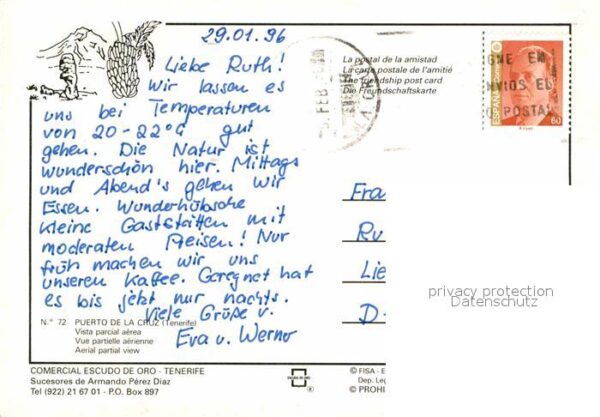 29.01.96
Liebe Ruth!
Wir lassen es
uns bei Temperaturen
von 20-22°C gut
gehen. Die Natur ist
wunderschön hier. Mittags
und Abend's gehen wir
Essen. Wunderhübsche
kleine Gaststätten mit
moderaten Preisen! Nur
früh machen wir uns
unseren Kaffee. Geregnet hat
es bis jetzt nur nachts.
Viele Grüße v.
Eva u. Werner
La postal de la amistad
La carte postale de l'amitié
The friendship post card
Die Freundschaftskarte
FEB
GNE EM
NVIOS ED
POSTAL
ESPAÑA
60
Fra
Ru
Lie
D-
privacy protection
Datenschutz
N.º 72 PUERTO DE LA CRUZ (Tenerife)
Vista parcial aérea
Vue partielle aérienne
Aerial partial view
COMERCIAL ESCUDO DE ORO - TENERIFE
Sucesores de Armando Pérez Diaz
Tel (922) 21 67 01 - P.O. Box 897
ESCUDO DE ORO
®
© FISA - E
Dep. Leg
© PROHI